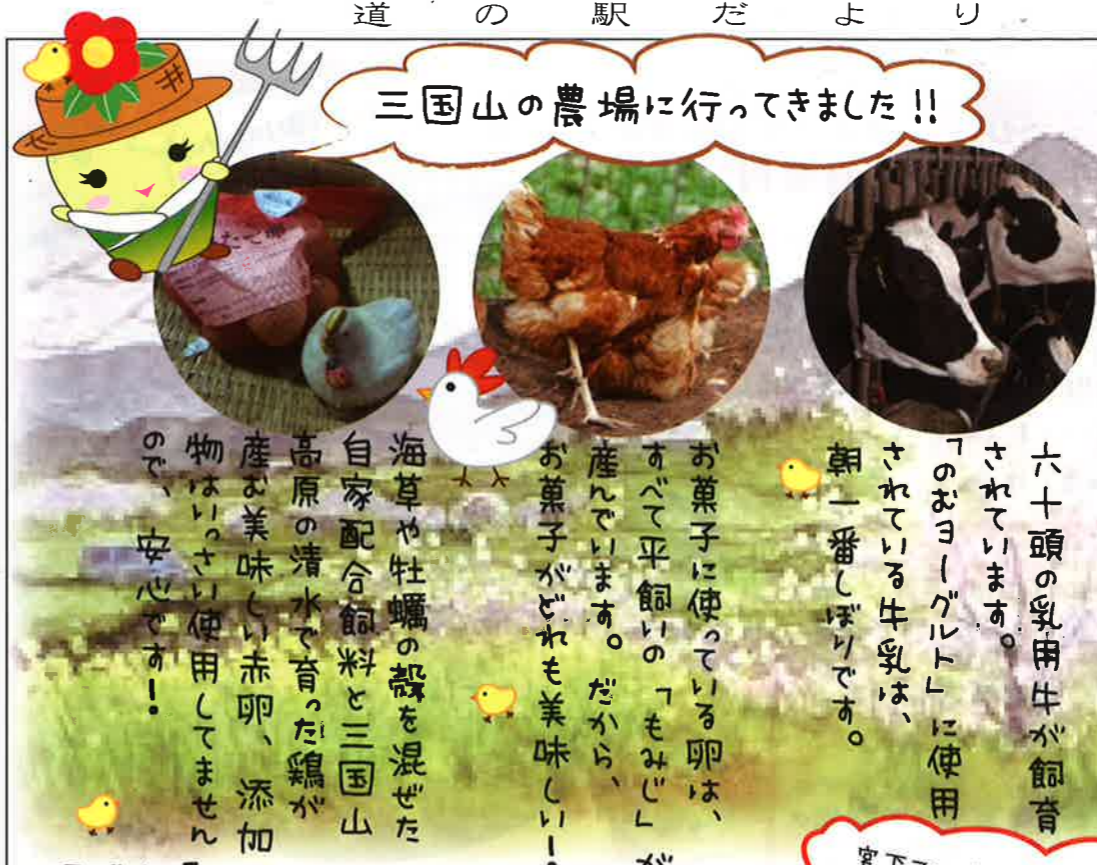 道の駅だより
三国山の農場に行ってきました!!
六十頭の乳用牛が飼育
されています。
「のむヨーグルト」に使用
されている牛乳は、
朝一番しぼりです。
お菓子に使っている卵は、
すべて平飼いの「もみじ」が
産んでいます。だから、
お菓子がどれも美味しい!
海草や牡蠣の殻を混ぜた
自家配合飼料と三国山
高原の清水で育った鶏が
産む美味しい赤卵、添加
物はいっさい使用してません
ので、安心です!